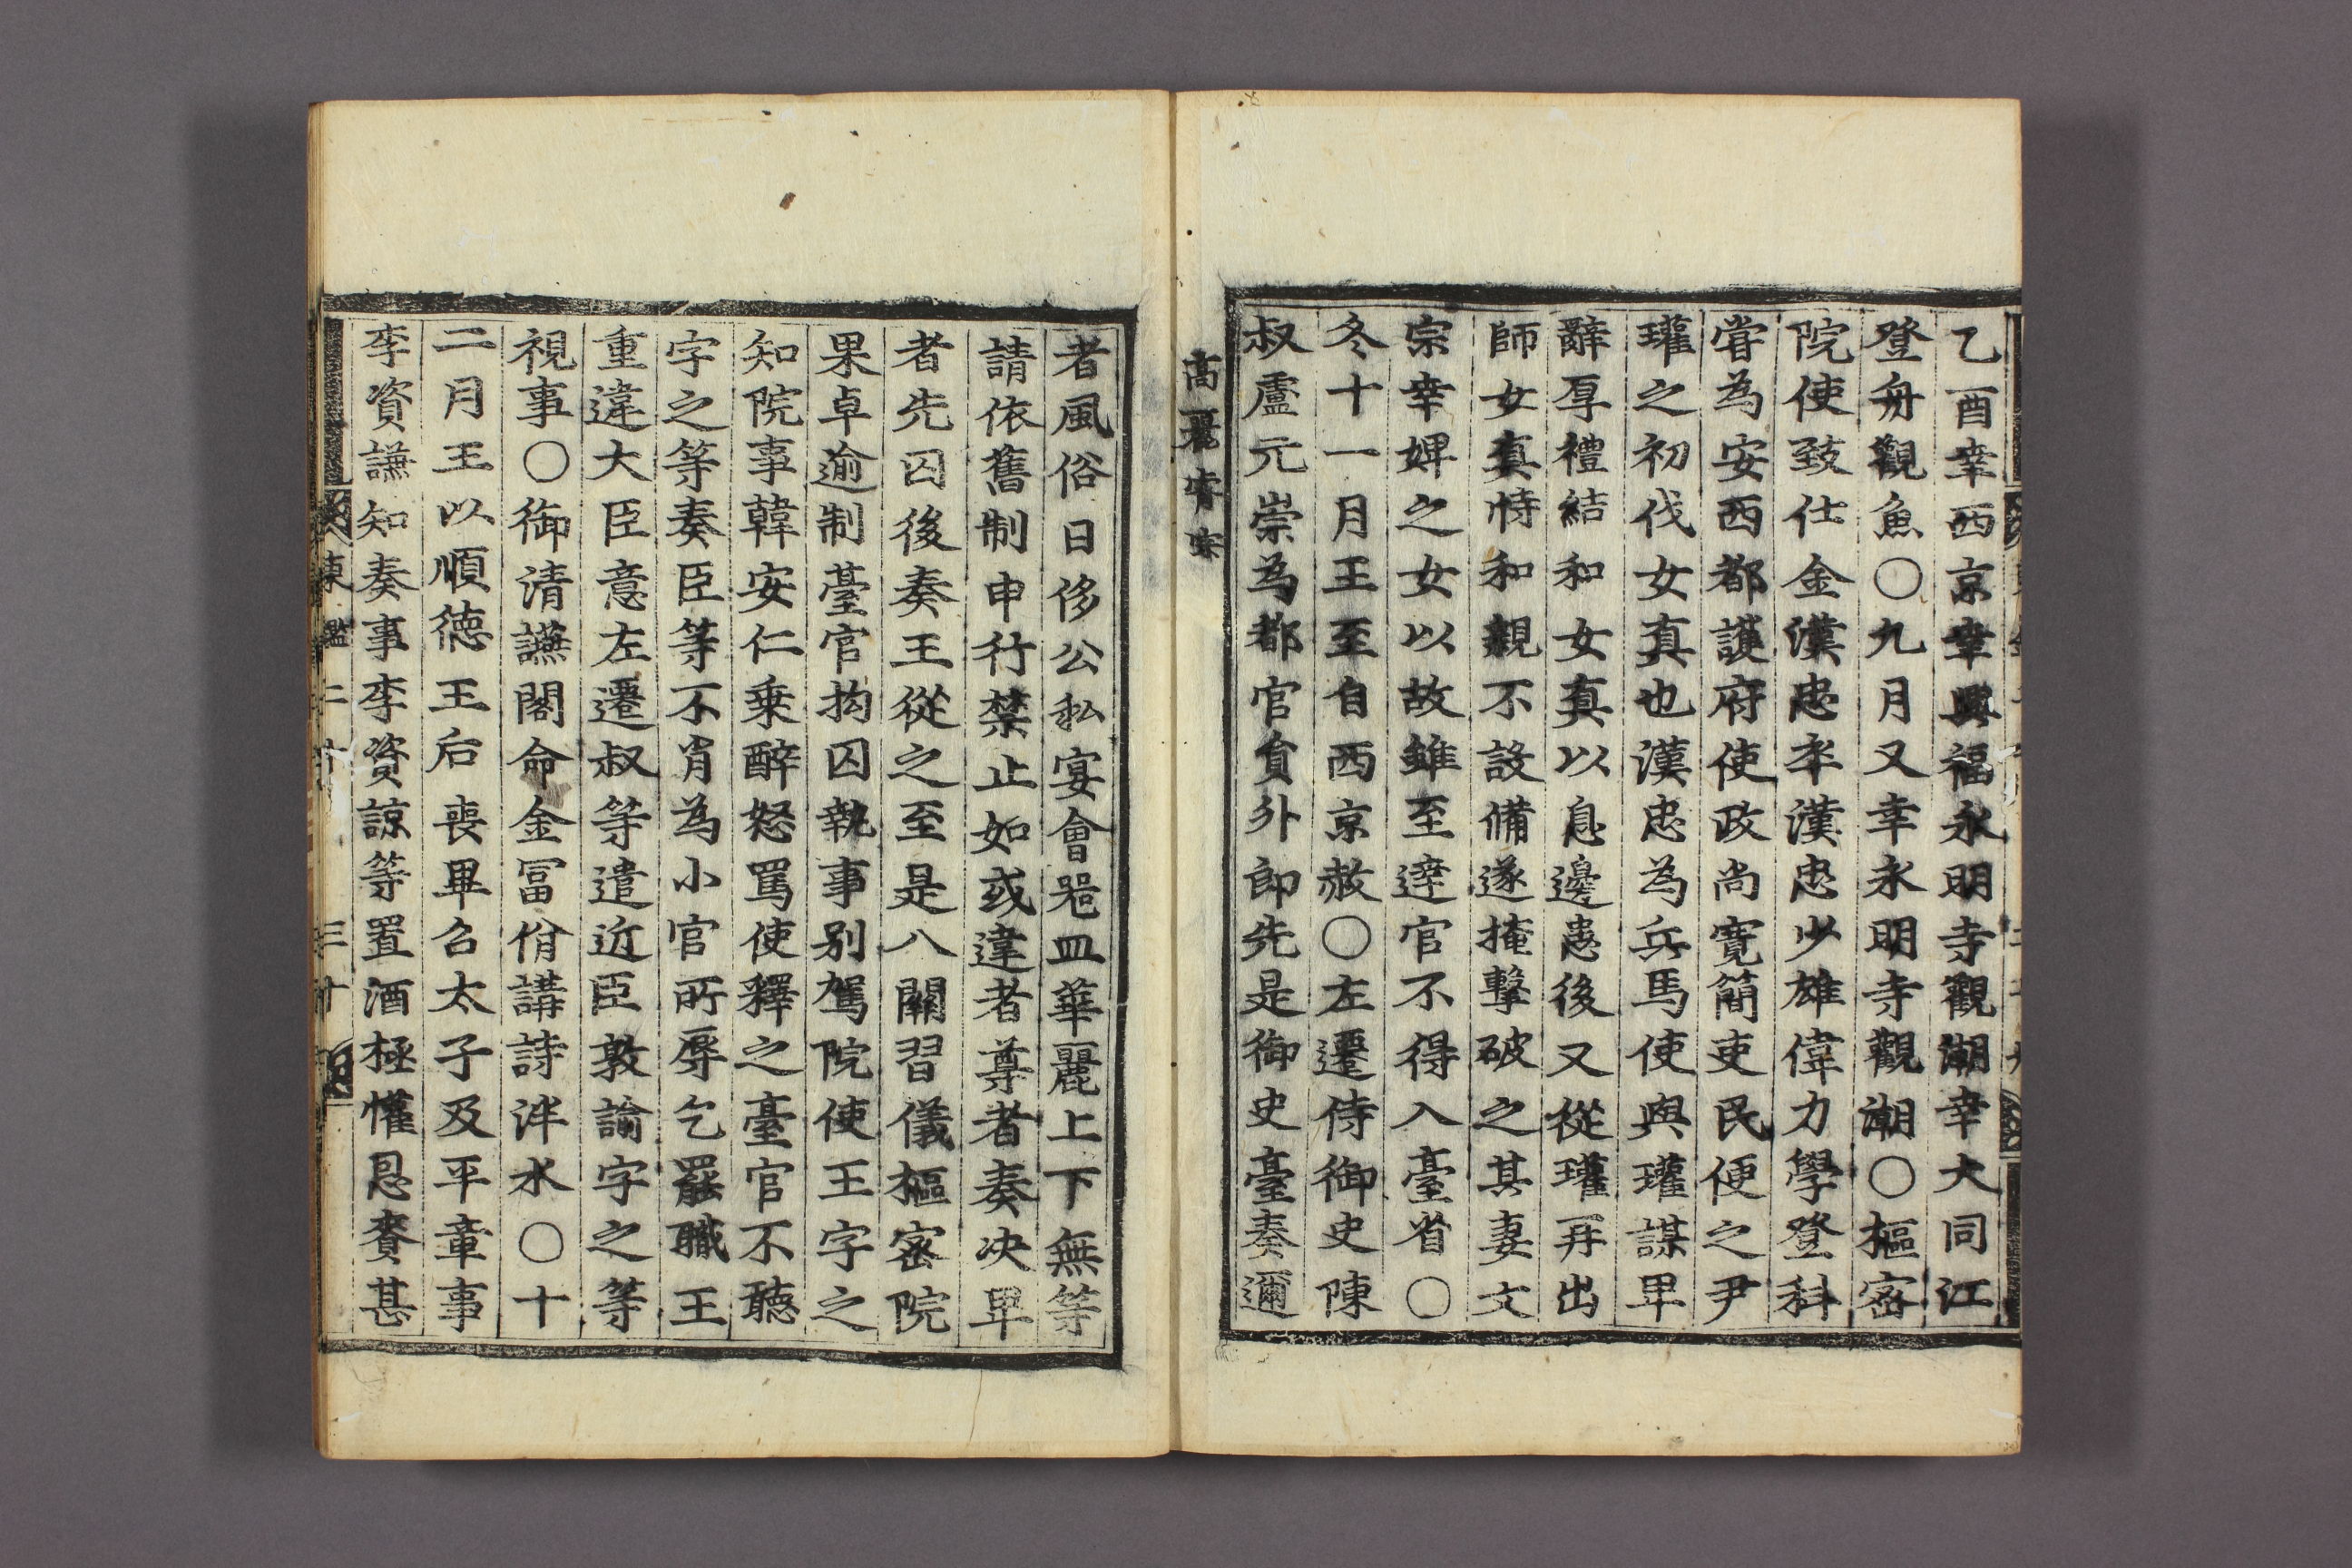 乙酉幸西京幸興福永明寺觀潮幸大同江
登舟觀魚〇九月又幸永明寺觀潮〇樞密
院使致仕金漢忠卒漢忠少雄偉力學登科
甞為安西都護府使政尚寬簡吏民便之尹
瓘之初伐女真也漢忠為兵馬使與瓘謀卑
辭厚禮結和女真以息邊患後又從瓘再出
師女真恃和親不設備遂掩擊破之其妻文
宗幸婢之女以故雖至達官不得入臺省〇
冬十一月王至自西京赦〇左遷侍御史陳
叔盧元崇為都官員外郎先是御史臺奏邇
高麗睿宗
者風俗日侈公私宴會器皿華麗上下無等
請依舊制申行禁止如或違者尊者奏决卑
者先囚後奏王從之至是八關習儀樞密院
果卓逾制臺官拘囚執事別駕院使王字之
知院事韓安仁乗醉怒罵使釋之臺官不聽
字之等奏臣等不肖為小官所辱乞罷職王
重違大臣意左遷叔等遣近臣敦諭字之等
視事〇御清讌閣命金冨佾講詩泮水〇十
二月王以順德王后喪畢召太子及平章事
李資謙知奏事李資諒等置酒極懽恩賚甚
東 鑑 二十 三十